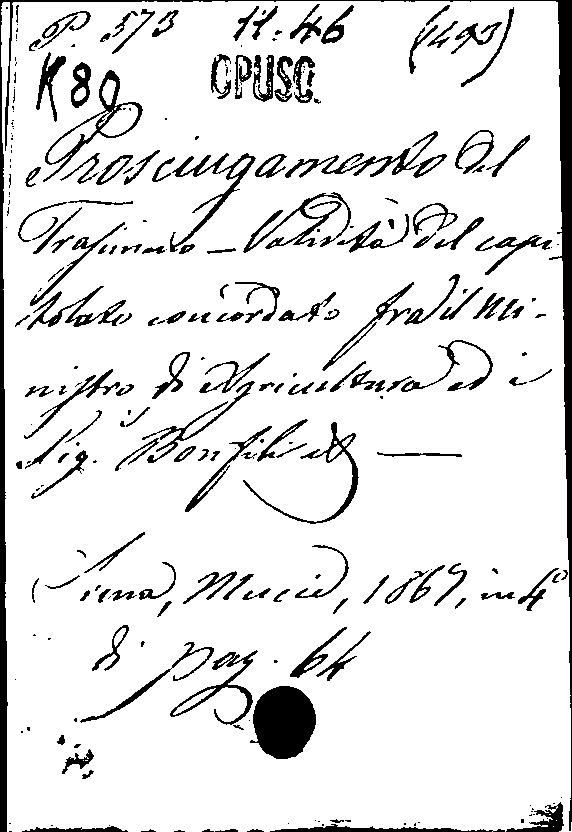 P. 573 11.46 (1493)
K 80 OPUSC.
Prosciugamento del
Trasimeno — Validità del capi-
tolato concordato fra il Mi-
nistro di Agricultura ed i
Sig. Bonfili &
Siena, Mucci, 1867, in 4°
di pag. 64